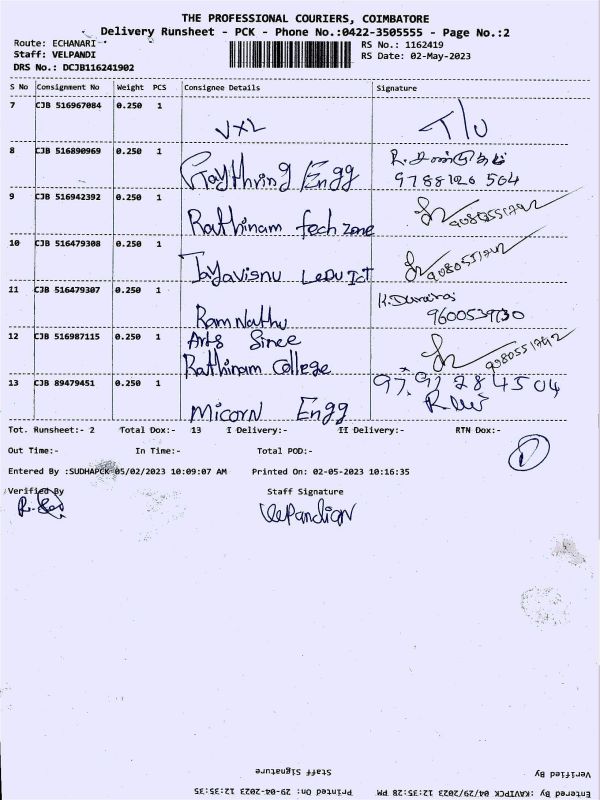 THE PROFESSIONAL COURIERS, COIMBATORE
Delivery Runsheet - PCK - Phone No.:0422-3505555 - Page No.:2
Route: ECHANARI
Staff: VELPANDI
DRS No.: DCJB116241902
RS No.: 1162419
RS Date: 02-May-2023
S No Consignment No Weight PCS Consignee Details Signature
7 CJB 516967084 0.250 1 VXL T/U
8 CJB 516890969 0.250 1 Engg 9788126 504
9 CJB 516942392 0.250 1 Rathinam tech zone
10 CJB 516479308 0.250 1
11 CJB 516479307 0.250 1 Ram Nathu 9600539730
12 CJB 516987115 0.250 1 Arts Since
Rathinam College
13 CJB 89479451 0.250 1 Micorn Engg 97.91 284504
Tot. Runsheet:- 2 Total Dox:- 13 I Delivery:- II Delivery:- RTN Dox:-
Out Time:- In Time:- Total POD:-
Entered By :SUDHAPCK 05/02/2023 10:09:07 AM Printed On: 02-05-2023 10:16:35
Verified By Staff Signature
Velpandian
Staff Signature Verified By
Printed On: 29-04-2023 12:35:35 Entered By :KAVIPCK 04/29/2023 12:35:28 PM